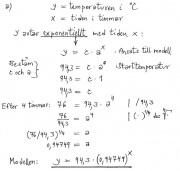 a) y = temperaturen i °C
x = tiden i timmar
y avtar exponentiellt med tiden x:
y = c · aˣ Ansats till modell
Bestäm c och a
94,3 = c · a⁰ Starttemperatur
94,3 = c
Efter 4 timmar: 76 = 94,3 · a⁴ | / 94,3
76/94,3 = a⁴ | (·)^¼
(76/94,3)^¼ = a
0,94749 = a
Modellen: y = 94,3 · (0,94749)ˣ